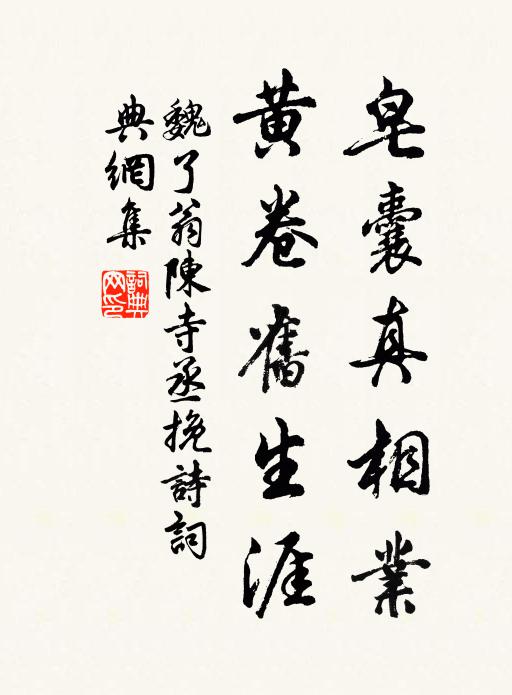 皂囊真相業
黃卷舊生涯
魏了翁陳寺丞挽詩詞
典網集
詞典网印